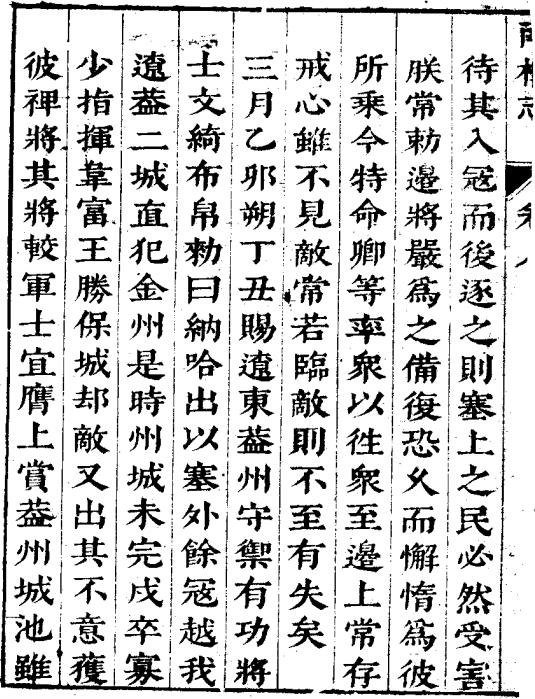 待其入冦而後逐之則塞上之民必然受害
朕常勅邊將嚴爲之備復恐乆而懈惰爲彼
所乗今特命卿等率衆以徃衆至邊上常存
戒心雖不見敵常若臨敵則不至有失矣
三月乙邜朔丁丑賜遼東葢州守禦有功將
士文綺布帛勑曰納哈出以塞外餘冦越我
遼葢二城直犯金州是時州城未完戍卒寡
少指揮韋富王勝保城却敵又出其不意獲
彼裨將其將較軍士宜膺上賞葢州城池雖